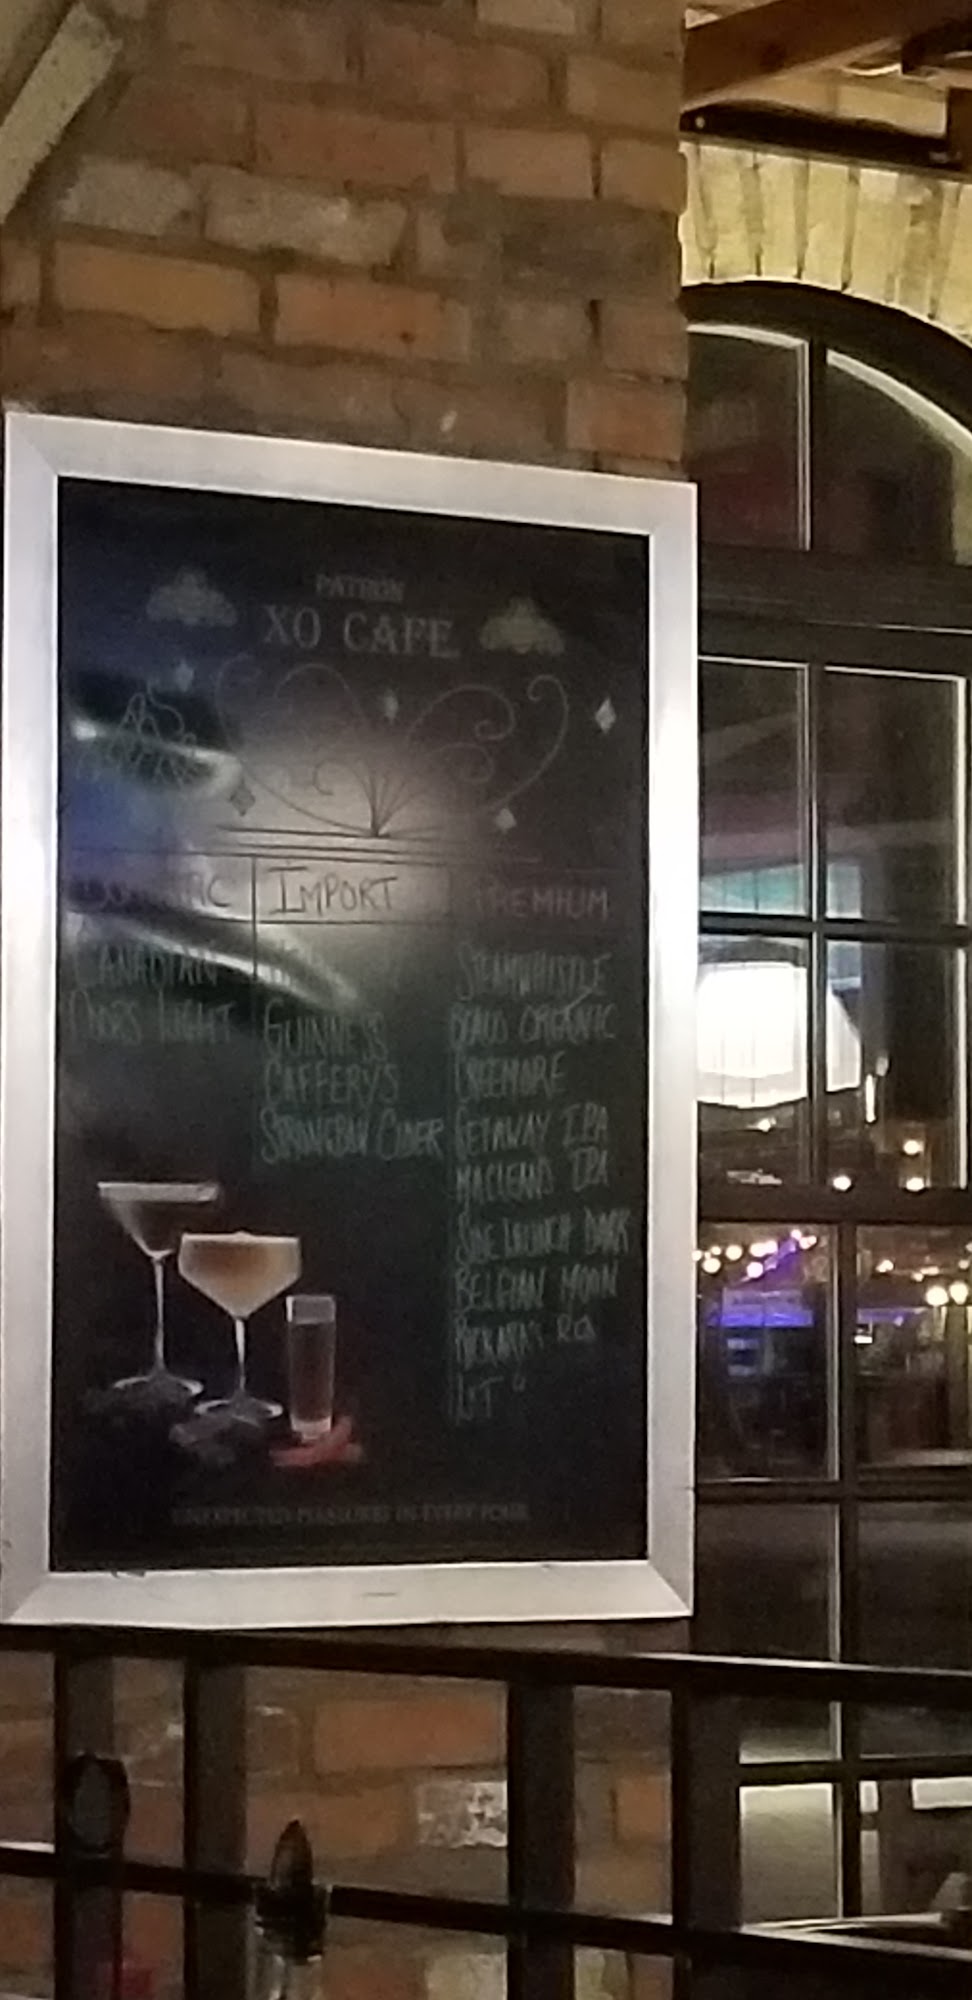 PATRON
XO CAFE
IMPORT
PREMIUM
CANADIAN
COORS LIGHT
GUINNESS
CAFFERY'S
STRONGBOW CIDER
STEAMWHISTLE
BEAUS ORGANIC
CREEMORE
GETAWAY IPA
MACLEANS IPA
SIDE LAUNCH DARK
BELGIAN MOON
RICKARD'S RED
UNEXPECTED PLEASURES IN EVERY POUR